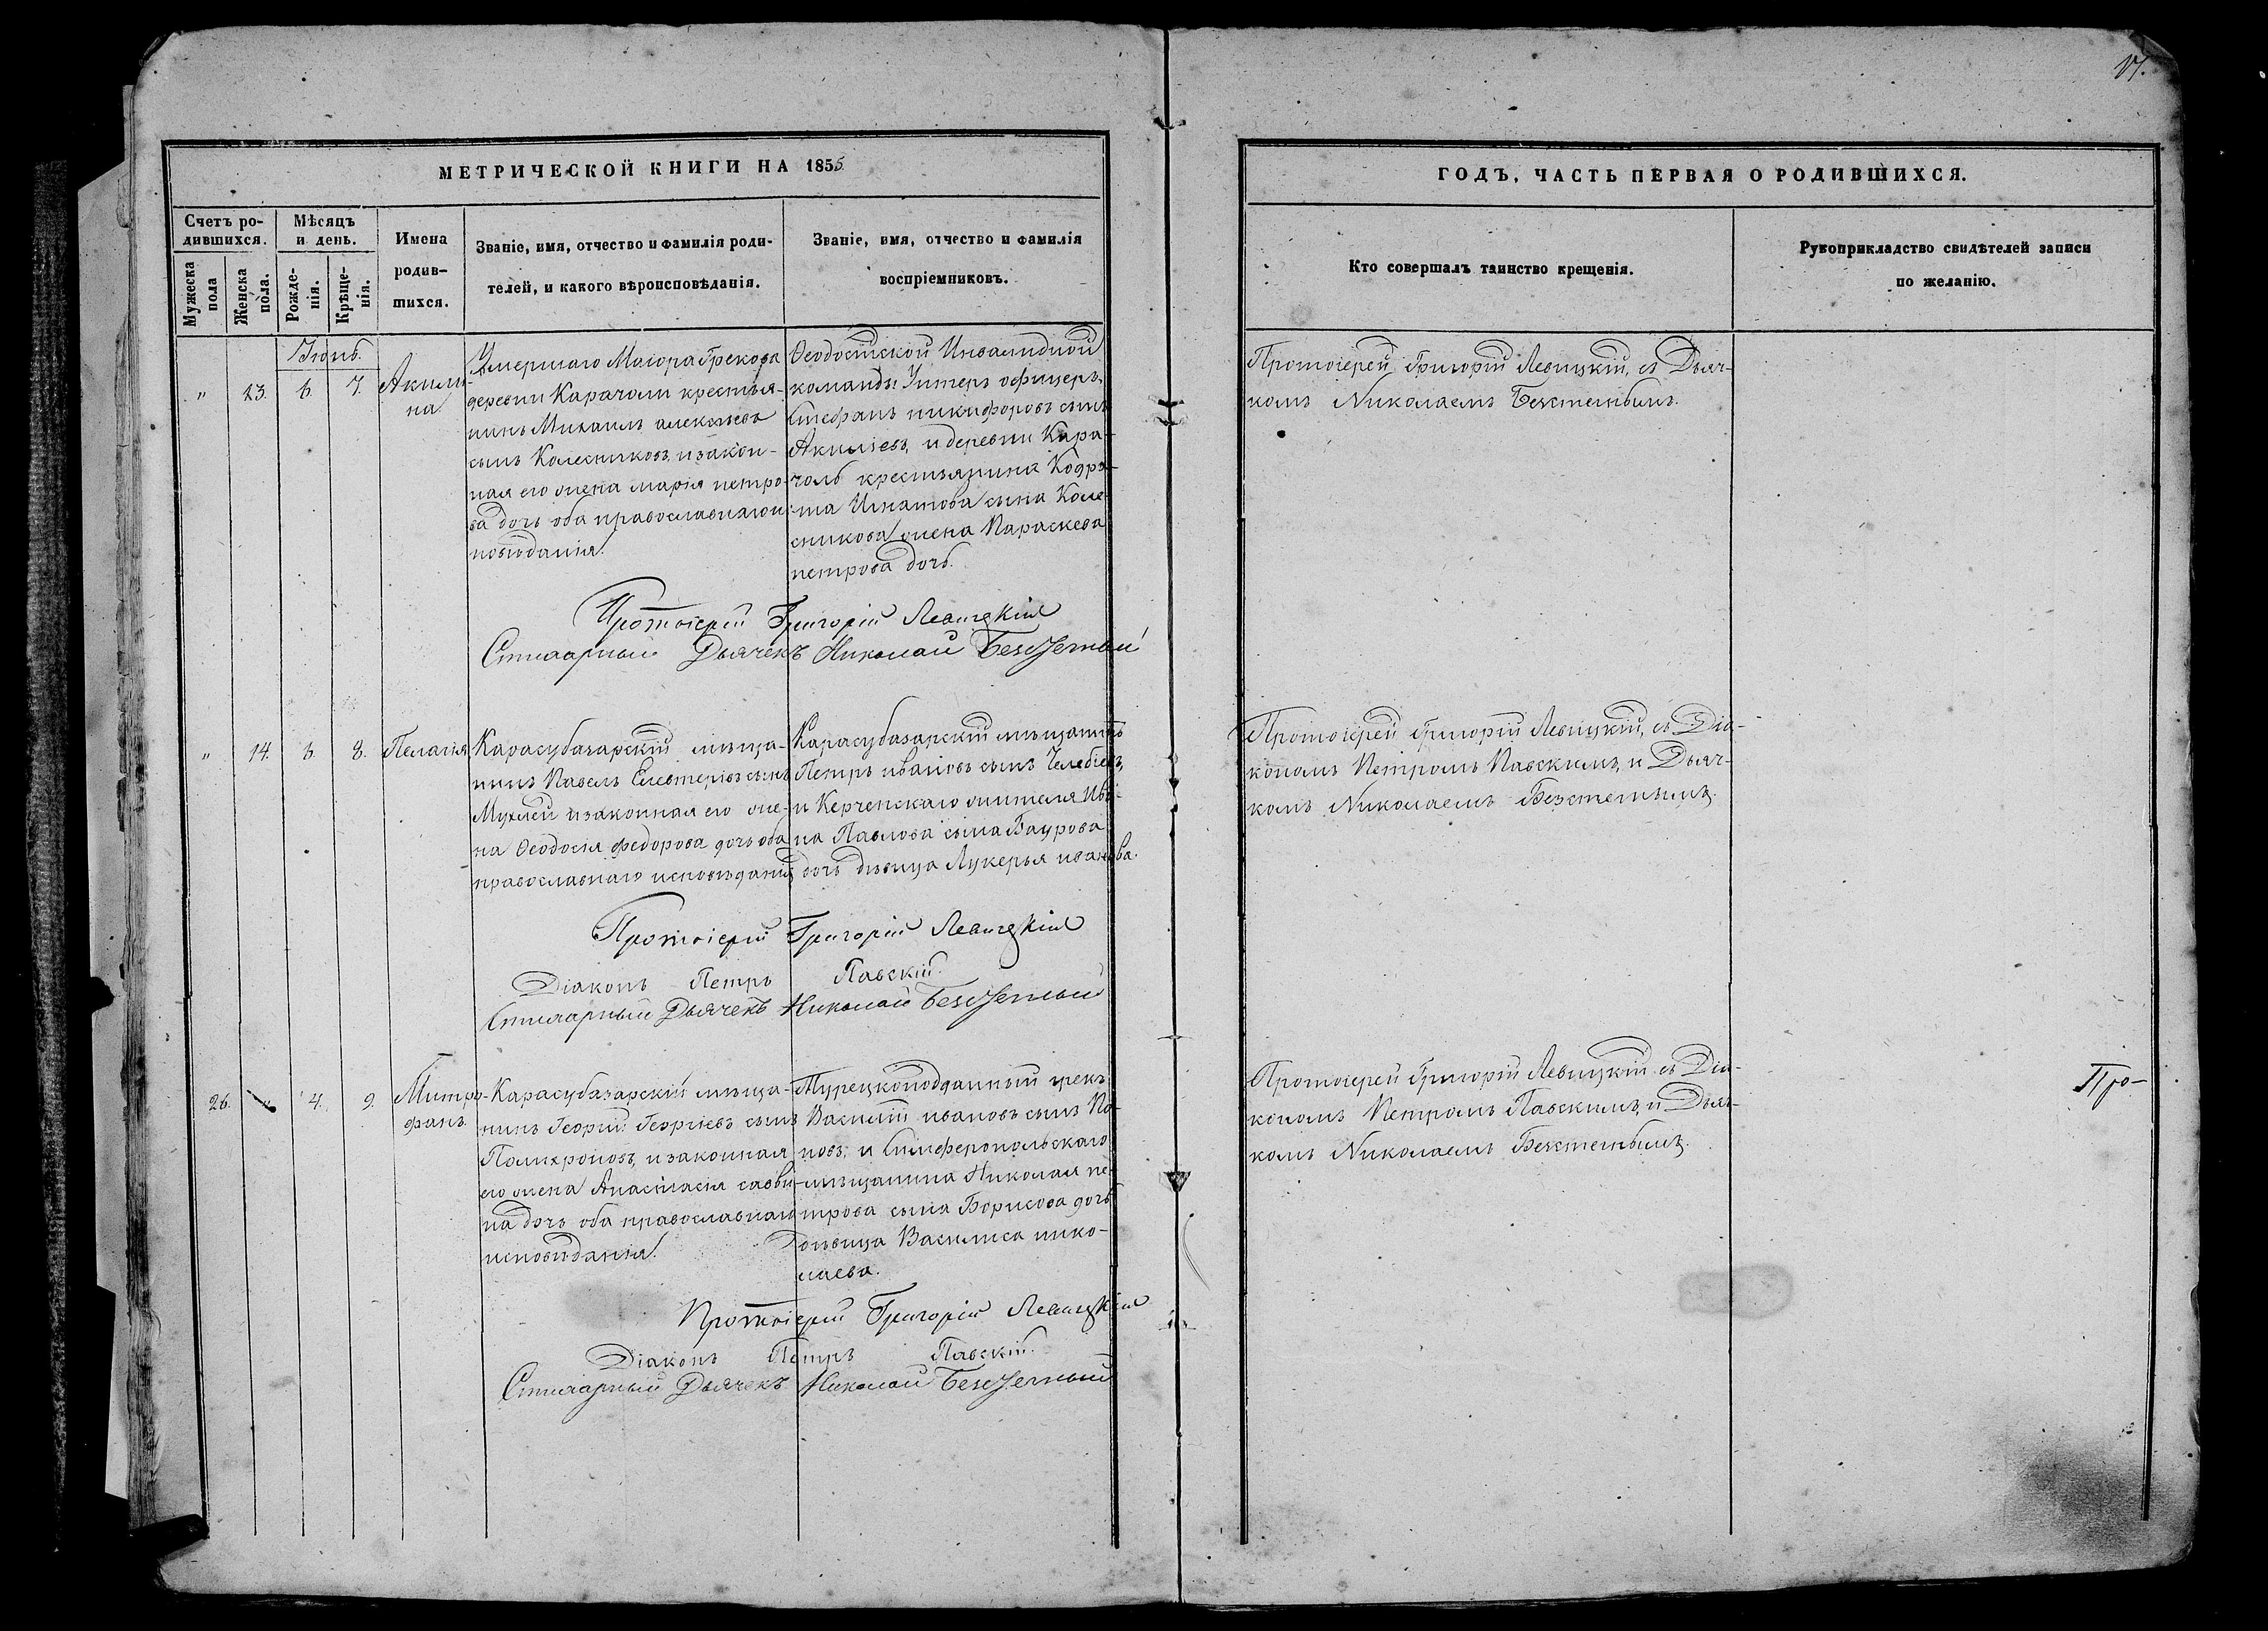 17.
МЕТРИЧЕСКОЙ КНИГИ НА 1855
Счетъ ро-
дившихся.
Мѣсяцъ
и день.
Мужеска
пола
Женска
пола.
Рожде-
нія.
Крѣще-
нія.
Имена
родив-
шихся.
Званіе, имя, отчество и фамилія роди-
телей, и какого вѣроисповѣданія.
Званіе, имя, отчество и фамилія
воспріемниковъ.
ГОДЪ, ЧАСТЬ ПЕРВАЯ О РОДИВШИХСЯ.
Кто совершалъ таинство крещенія.
Рукоприкладство свидѣтелей записи
по желанію.
" 23. 6. 7.
Акили-
на
Умершаго Маіора Грекова
деревни Карачоли крестья-
нинъ Михаилъ алексѣевъ
сынъ Колесниковъ, и закон-
ная его жена марія петро-
ва дочь оба православнаго и
повѣданія.
Ѳеодосійской Инвалидной
команды Унтеръ офицеръ,
Стефанъ никифоровъ сынъ
и деревни Кара-
чоль крестьянина Кодра-
та Игнатова сына Коле-
сникова жена Параскева
петрова дочь.
Протоіерей Григорій Левицкій, съ Дьяч-
комъ Николаемъ
Протоіерей Григорій Левицкій
Стихарный Дьячекъ Николай
" 14. 3. 8. Пелагія
Карасубазарскій мѣща-
нинъ Павелъ Елевтеріевъ сынъ
и законная его же-
на Ѳеодосія федорова дочь оба
православнаго исповѣданія
Карасубазарскій мѣщанинъ
Петръ ивановъ сынъ Челебіевъ,
и Керченскаго жителя Ива-
на Павлова сына Баурова
дочь дѣвица Лукерья иванова.
Протоіерей Григорій Левицкій, съ Діа-
кономъ Петромъ Павскимъ, и Дьяч-
комъ Николаемъ
Протоіерей Григорій Левицкій
Діаконъ Петръ Павскій.
Стихарный Дьячекъ Николай
26. " 4. 9.
Митро-
фанъ
Карасубазарскій мѣща-
нинъ Георгій Георгіевъ сынъ
Полихроновъ, и законная
его жена Анастасія савви-
на дочь оба православнаго
исповѣданія.
Турецкоподданный грекъ
Василій ивановъ сынъ По-
повъ, и Симферопольскаго
мѣщанина Николая пе-
трова сына Борисова дочь
дѣвица Василиса нико-
лаева.
Протоіерей Григорій Левицкій съ Діа-
кономъ Петромъ Павскимъ, и Дьяч-
комъ Николаемъ
Про-
Протоіерей Григорій Левицкій
Діаконъ Петръ Павскій.
Стихарный Дьячекъ Николай